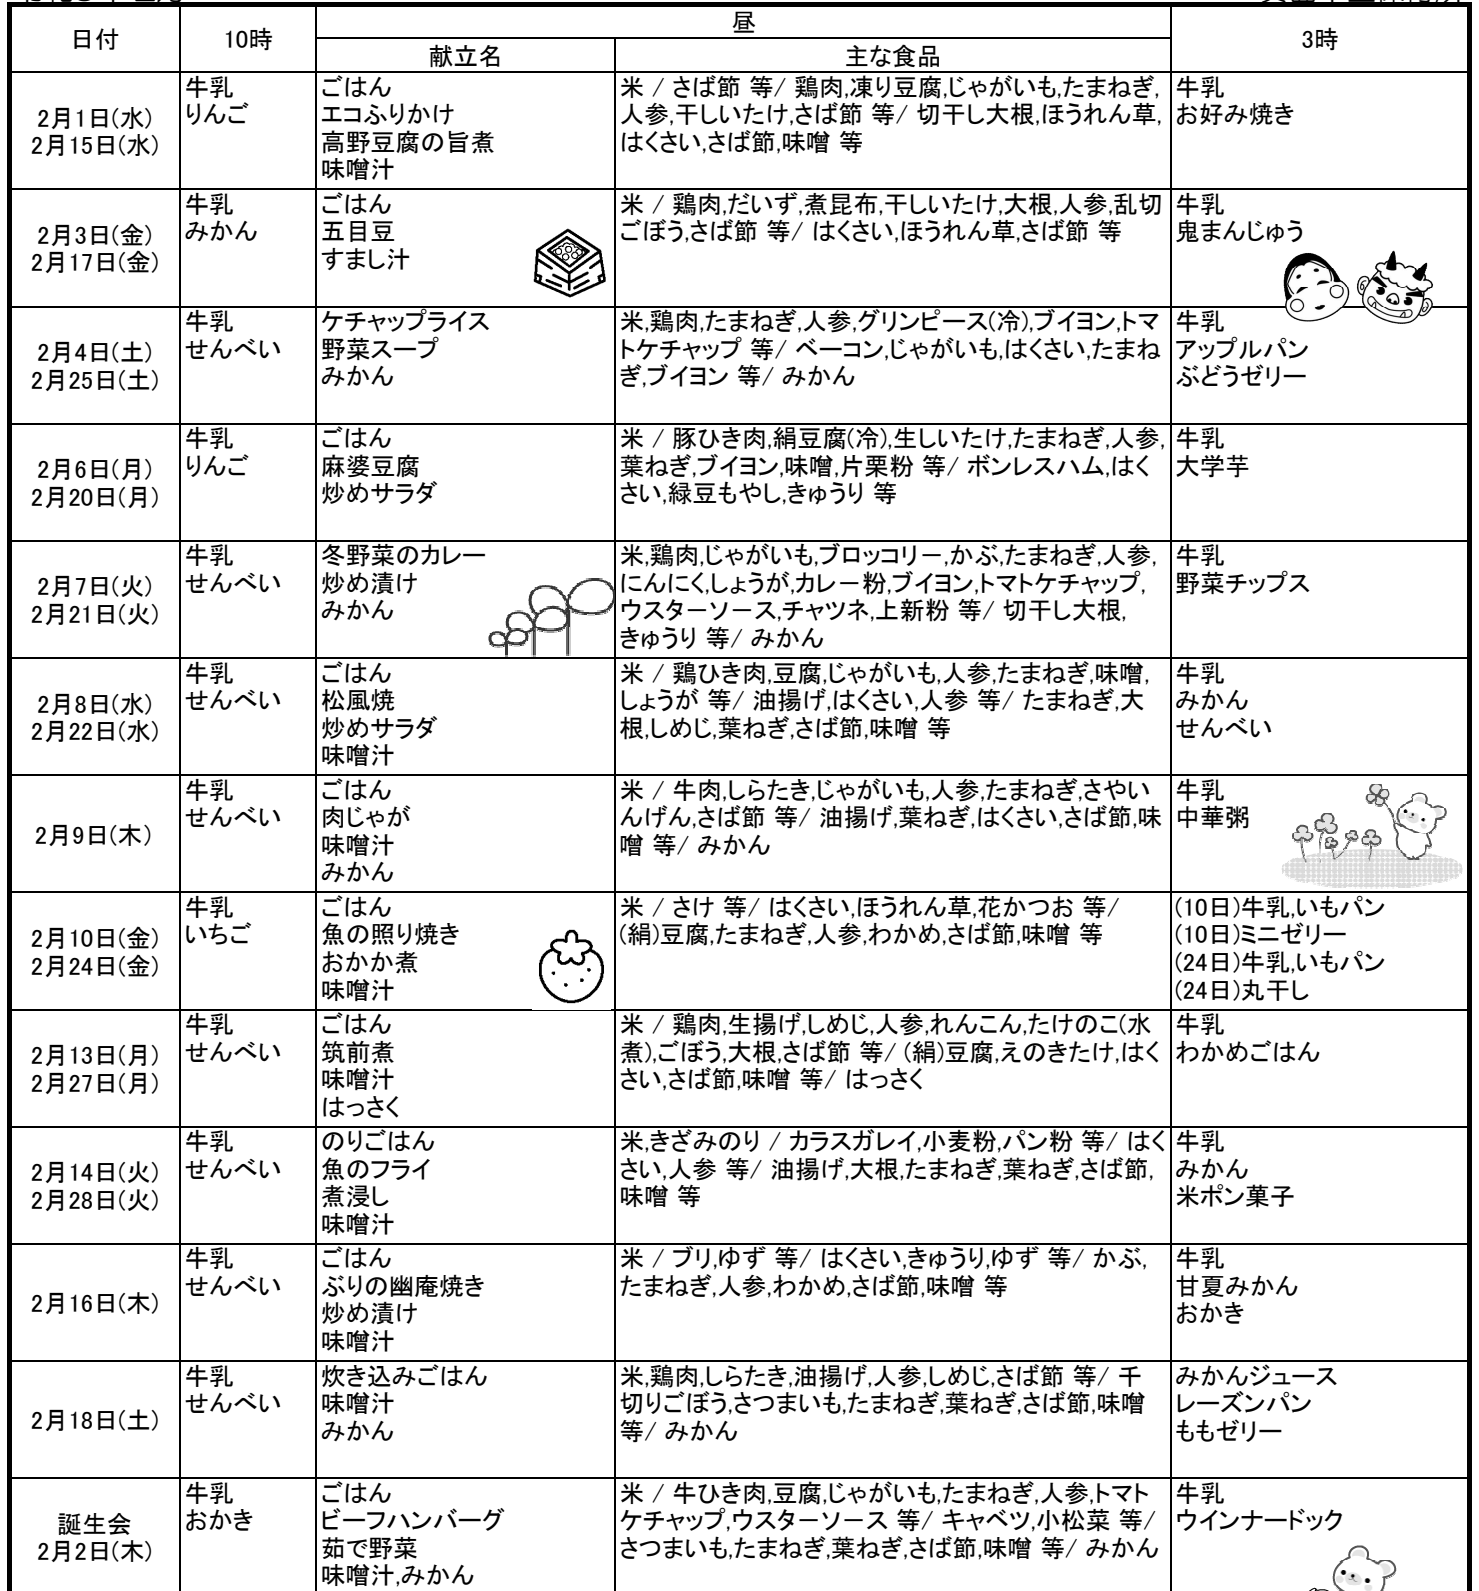 日付
10時
昼
3時
献立名
主な食品
2月1日(水)
2月15日(水)
牛乳
りんご
ごはん
エコふりかけ
高野豆腐の旨煮
味噌汁
米 / さば節 等/ 鶏肉,凍り豆腐,じゃがいも,たまねぎ,
人参,干しいたけ,さば節 等/ 切干し大根,ほうれん草,
はくさい,さば節,味噌 等
牛乳
お好み焼き
2月3日(金)
2月17日(金)
牛乳
みかん
ごはん
五目豆
すまし汁
米 / 鶏肉,だいず,煮昆布,干しいたけ,大根,人参,乱切
ごぼう,さば節 等/ はくさい,ほうれん草,さば節 等
牛乳
鬼まんじゅう
2月4日(土)
2月25日(土)
牛乳
せんべい
ケチャップライス
野菜スープ
みかん
米,鶏肉,たまねぎ,人参,グリンピース(冷),ブイヨン,トマ
トケチャップ 等/ ベーコン,じゃがいも,はくさい,たまね
ぎ,ブイヨン 等/ みかん
牛乳
アップルパン
ぶどうゼリー
2月6日(月)
2月20日(月)
牛乳
りんご
ごはん
麻婆豆腐
炒めサラダ
米 / 豚ひき肉,絹豆腐(冷),生しいたけ,たまねぎ,人参,
葉ねぎ,ブイヨン,味噌,片栗粉 等/ ボンレスハム,はく
さい,緑豆もやし,きゅうり 等
牛乳
大学芋
2月7日(火)
2月21日(火)
牛乳
せんべい
冬野菜のカレー
炒め漬け
みかん
米,鶏肉,じゃがいも,ブロッコリー,かぶ,たまねぎ,人参,
にんにく,しょうが,カレー粉,ブイヨン,トマトケチャップ,
ウスターソース,チャツネ,上新粉 等/ 切干し大根,
きゅうり 等/ みかん
牛乳
野菜チップス
2月8日(水)
2月22日(水)
牛乳
せんべい
ごはん
松風焼
炒めサラダ
味噌汁
米 / 鶏ひき肉,豆腐,じゃがいも,人参,たまねぎ,味噌,
しょうが 等/ 油揚げ,はくさい,人参 等/ たまねぎ,大
根,しめじ,葉ねぎ,さば節,味噌 等
牛乳
みかん
せんべい
2月9日(木)
牛乳
せんべい
ごはん
肉じゃが
味噌汁
みかん
米 / 牛肉,しらたき,じゃがいも,人参,たまねぎ,さやい
んげん,さば節 等/ 油揚げ,葉ねぎ,はくさい,さば節,味
噌 等/ みかん
牛乳
中華粥
2月10日(金)
2月24日(金)
牛乳
いちご
ごはん
魚の照り焼き
おかか煮
味噌汁
米 / さけ 等/ はくさい,ほうれん草,花かつお 等/
(絹)豆腐,たまねぎ,人参,わかめ,さば節,味噌 等
(10日)牛乳,いもパン
(10日)ミニゼリー
(24日)牛乳,いもパン
(24日)丸干し
2月13日(月)
2月27日(月)
牛乳
せんべい
ごはん
筑前煮
味噌汁
はっさく
米 / 鶏肉,生揚げ,しめじ,人参,れんこん,たけのこ(水
煮),ごぼう,大根,さば節 等/ (絹)豆腐,えのきたけ,はく
さい,さば節,味噌 等/ はっさく
牛乳
わかめごはん
2月14日(火)
2月28日(火)
牛乳
せんべい
のりごはん
魚のフライ
煮浸し
味噌汁
米,きざみのり / カラスガレイ,小麦粉,パン粉 等/ はく
さい,人参 等/ 油揚げ,大根,たまねぎ,葉ねぎ,さば節,
味噌 等
牛乳
みかん
米ポン菓子
2月16日(木)
牛乳
せんべい
ごはん
ぶりの幽庵焼き
炒め漬け
味噌汁
米 / ブリ,ゆず 等/ はくさい,きゅうり,ゆず 等/ かぶ,
たまねぎ,人参,わかめ,さば節,味噌 等
牛乳
甘夏みかん
おかき
2月18日(土)
牛乳
せんべい
炊き込みごはん
味噌汁
みかん
米,鶏肉,しらたき,油揚げ,人参,しめじ,さば節 等/ 千
切りごぼう,さつまいも,たまねぎ,葉ねぎ,さば節,味噌
等/ みかん
みかんジュース
レーズンパン
ももゼリー
誕生会
2月2日(木)
牛乳
おかき
ごはん
ビーフハンバーグ
茹で野菜
味噌汁,みかん
米 / 牛ひき肉,豆腐,じゃがいも,たまねぎ,人参,トマト
ケチャップ,ウスターソース 等/ キャベツ,小松菜 等/
さつまいも,たまねぎ,葉ねぎ,さば節,味噌 等/ みかん
牛乳
ウインナードック